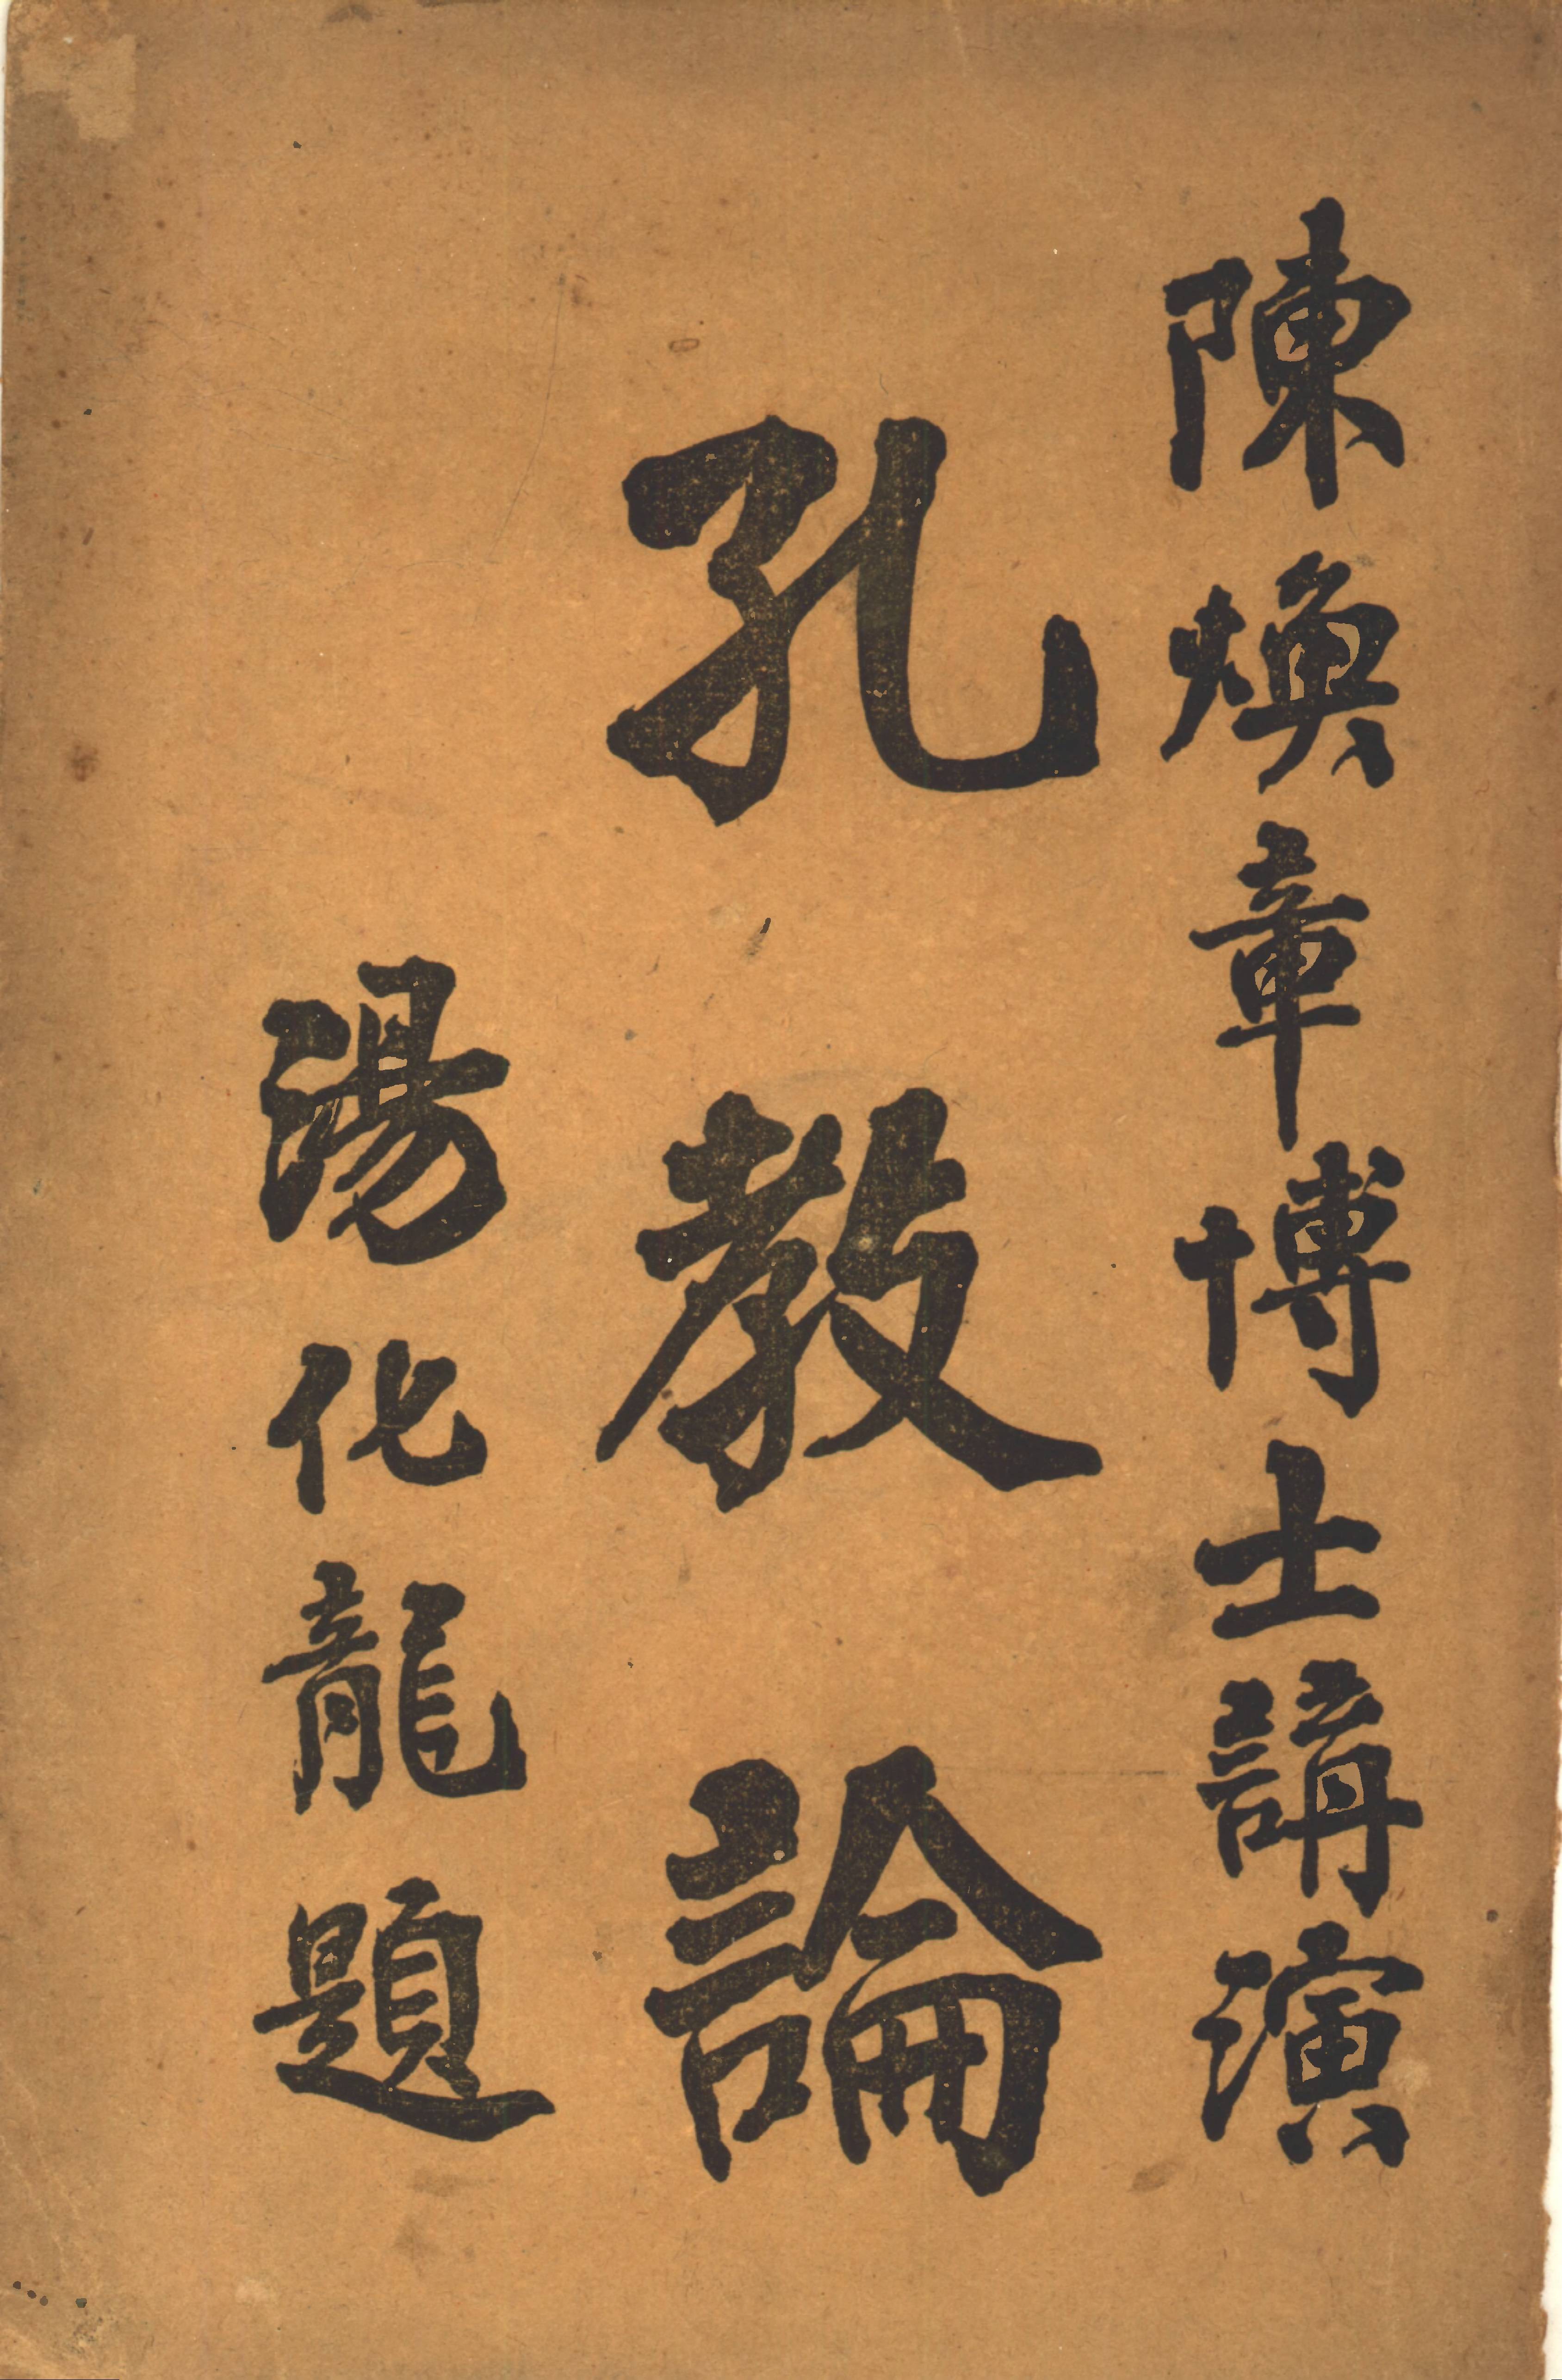 陳煥章博士講演
孔教論
湯化龍題